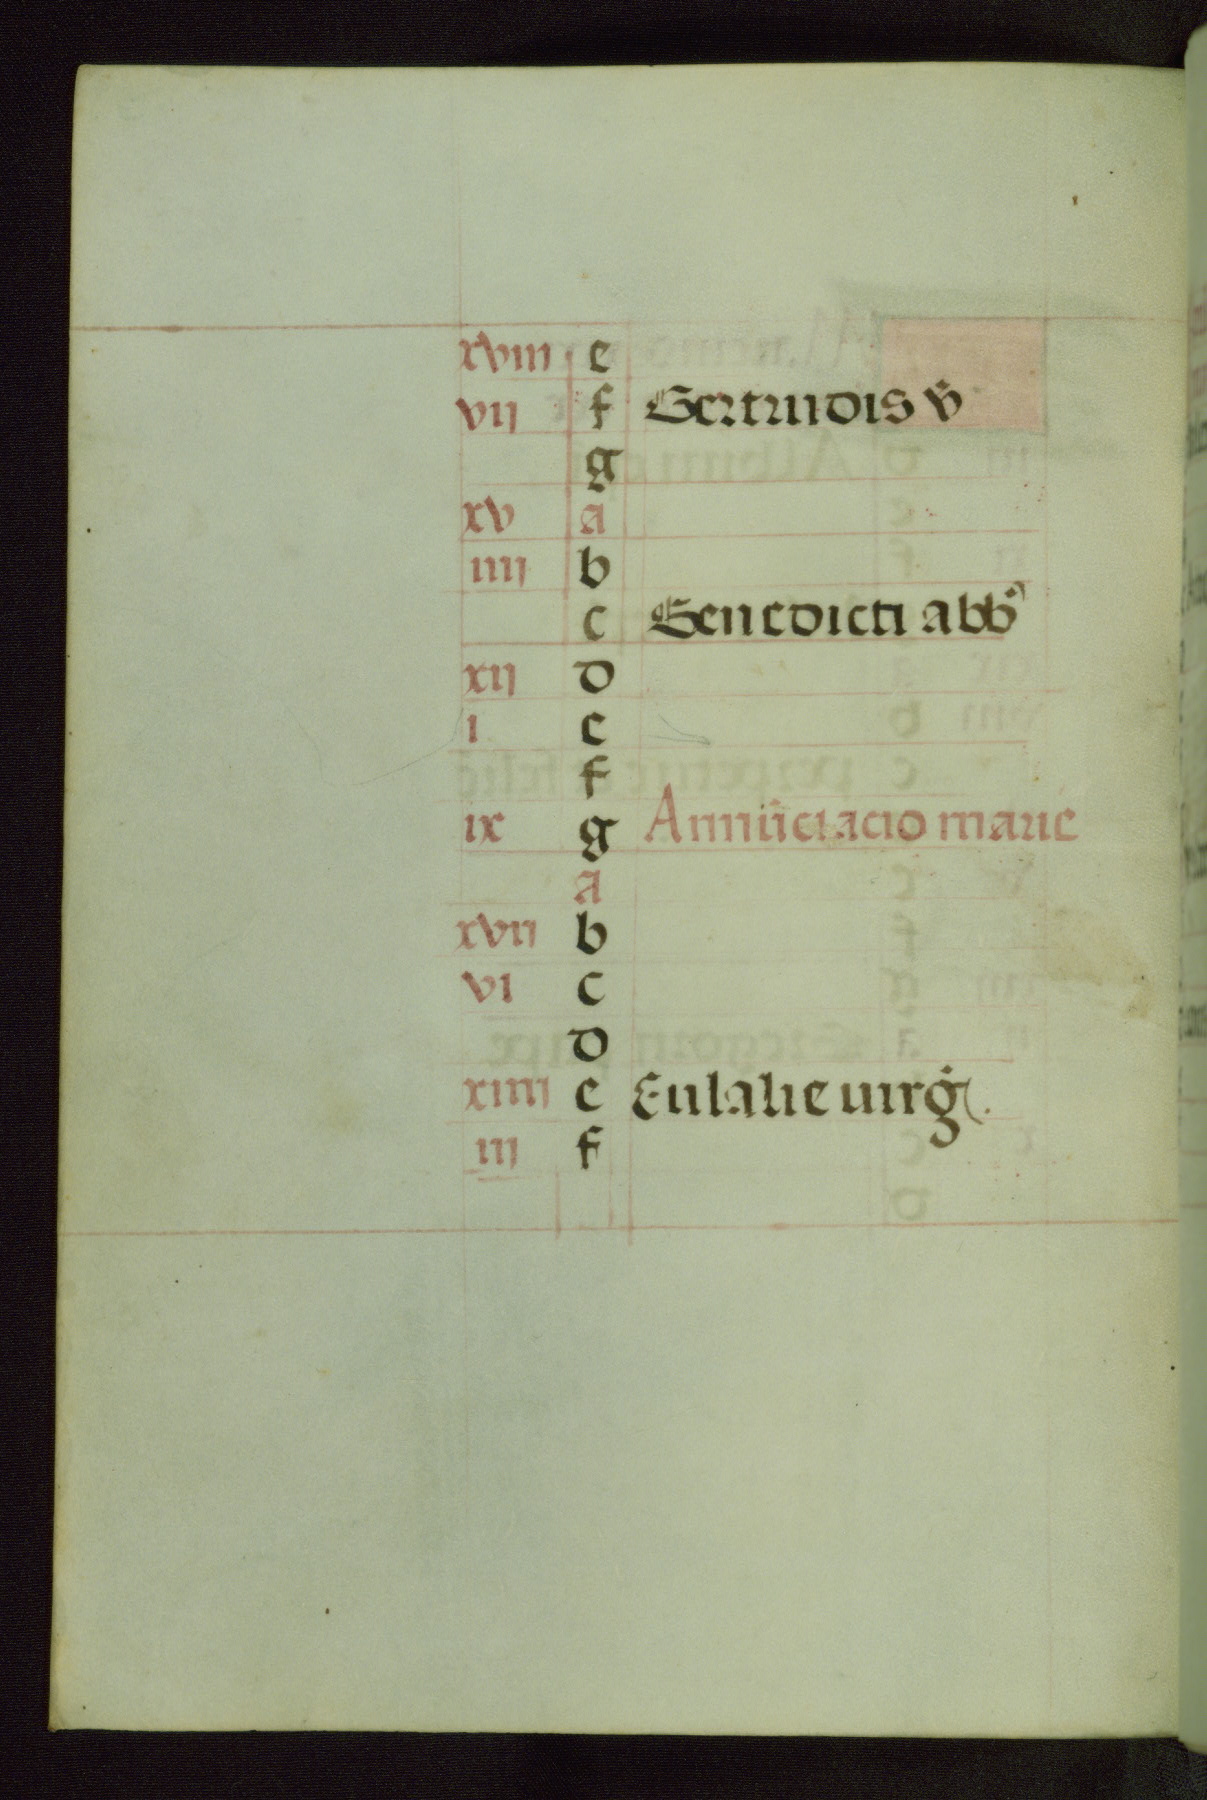 xviii e
vii f Gertrudis v̄
g
xv a
iiii b
c Benedicti abb̄
xii d
i e
f
ix g Annūctacio marie
a
xvii b
vi c
d
xiiii e Eulalie uirg̃
iii f